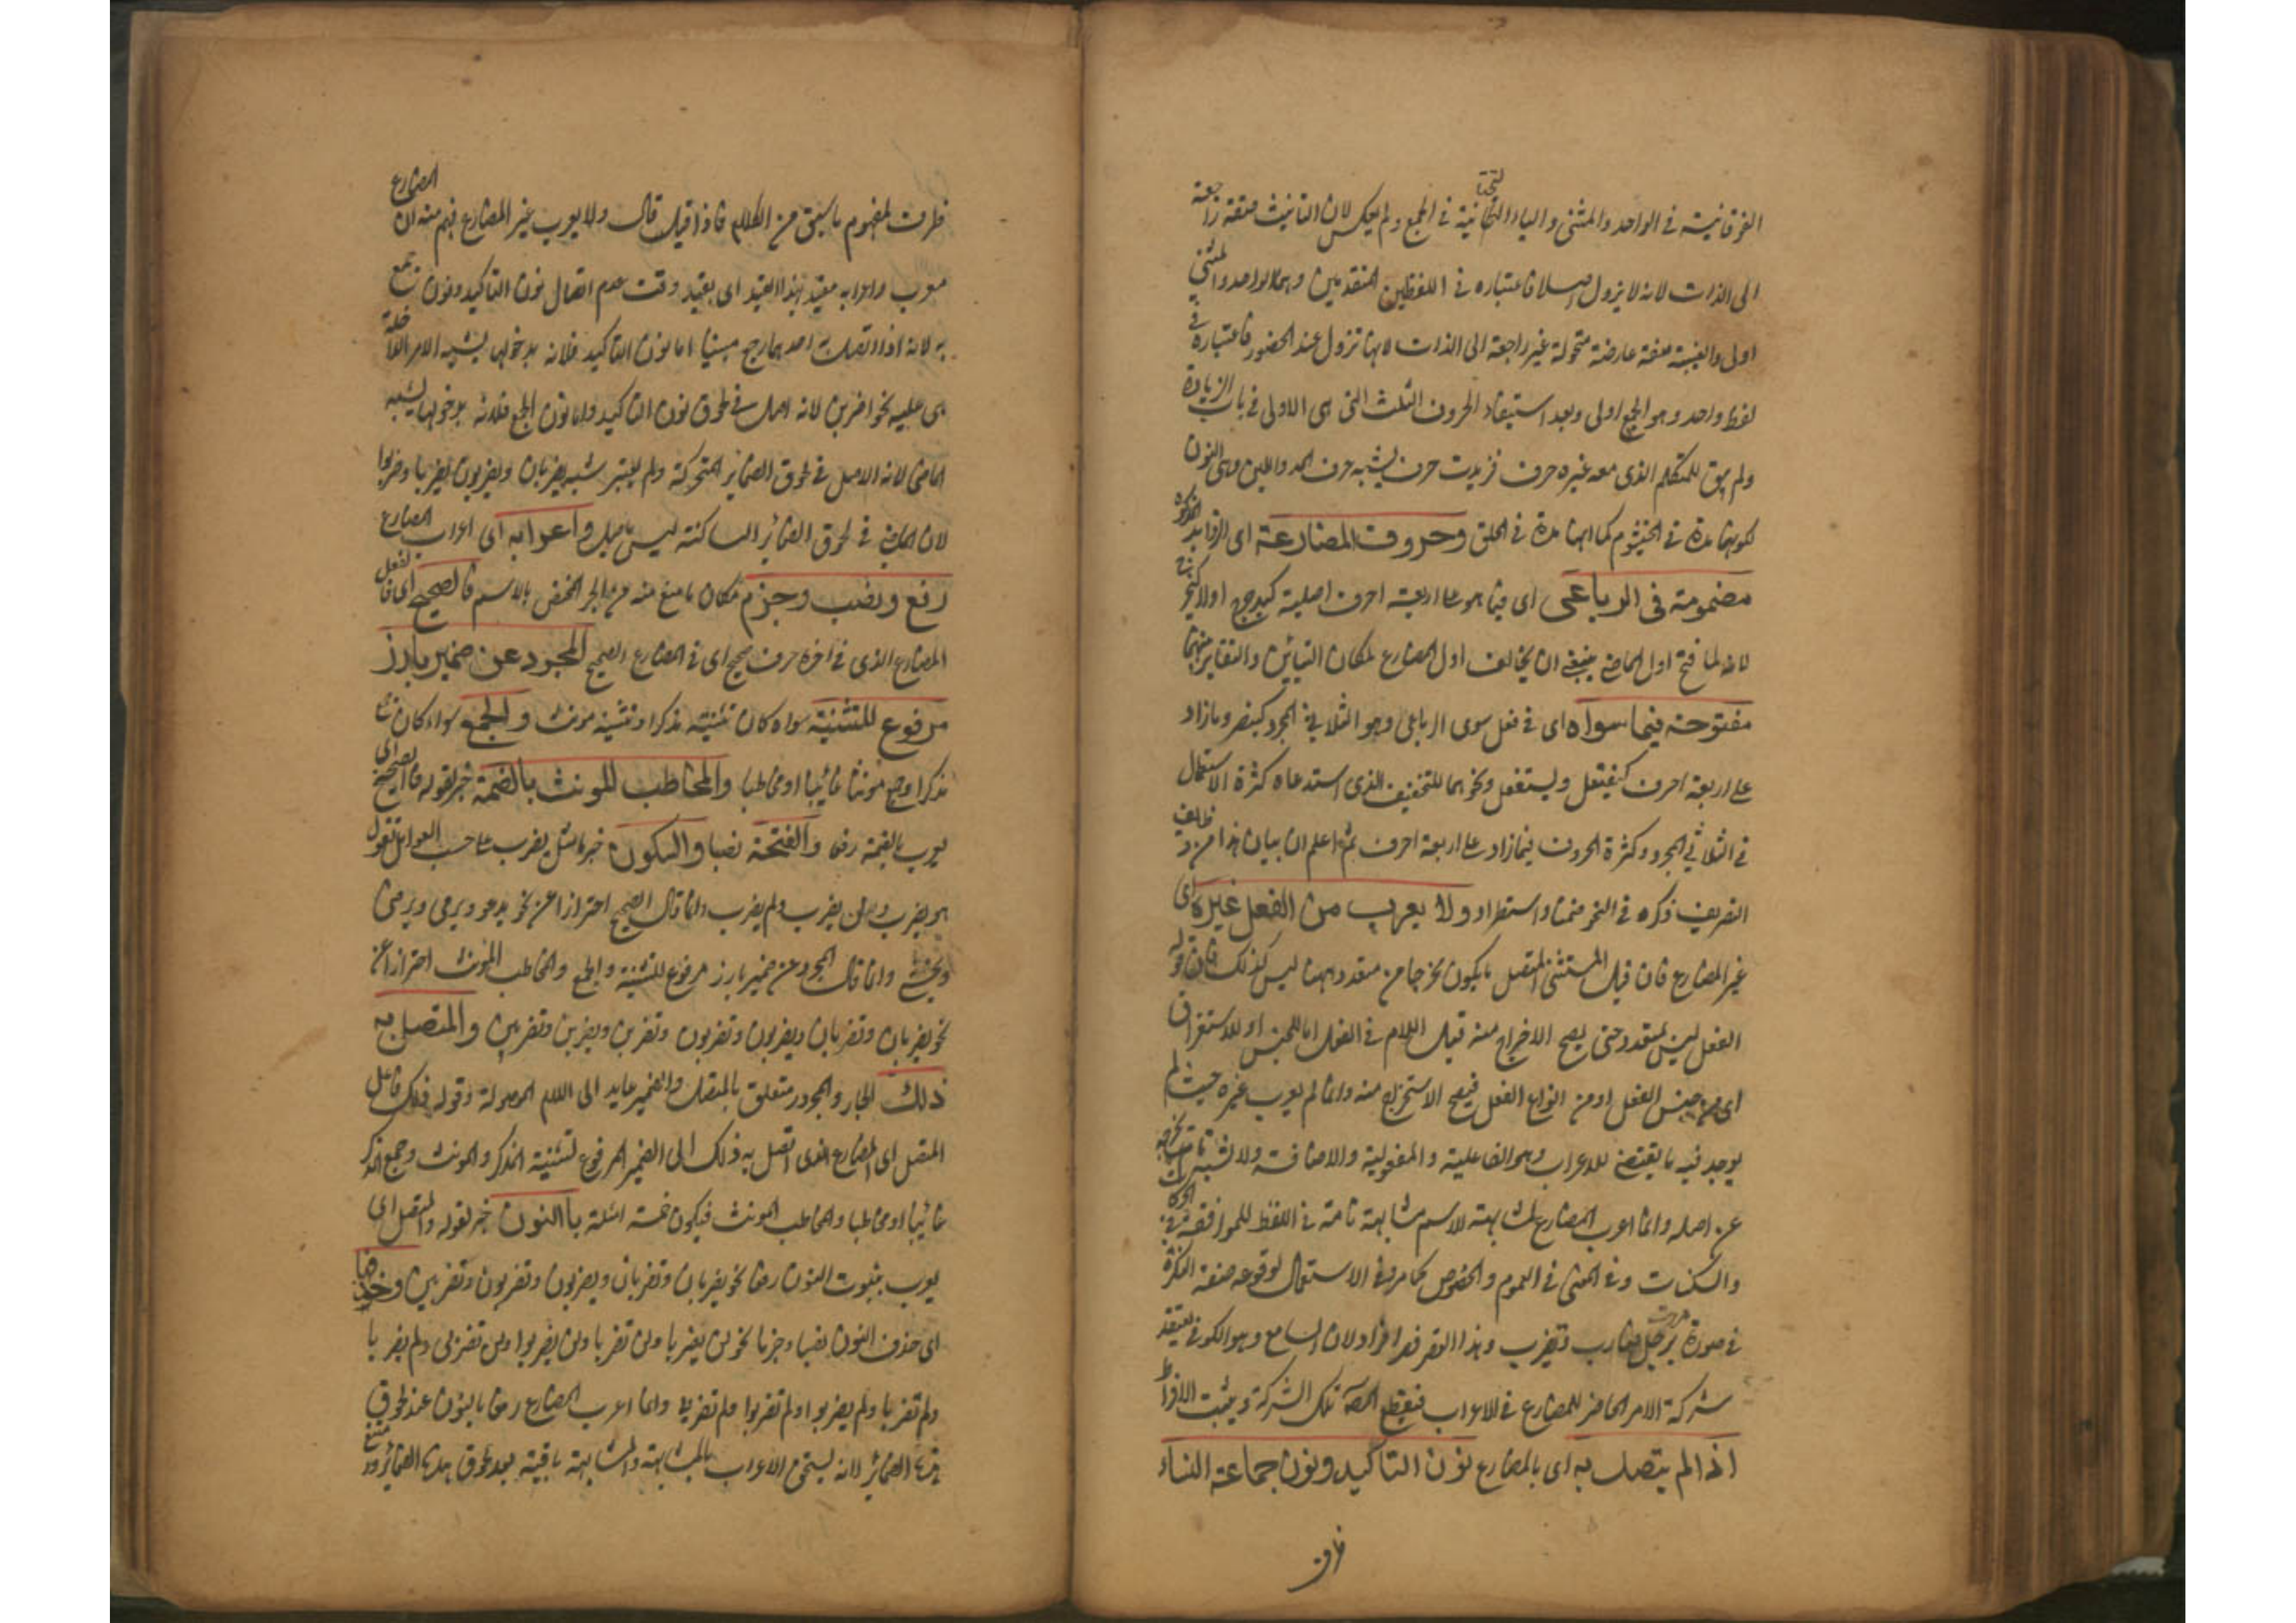 الفوقانية في الواحد والمثنى والياء التحتانية في الجمع ولم يعكس لان التانيث صفة راجعة
الى الذات لانه لا يزول اصلا فاعتباره في اللفظين المتقدمين وهما الواحد والمثنى
اولى والغيبة صفة عارضة متحولة غير راجعة الى الذات لانها تزول عند الحضور فاعتباره في
لفظ واحد وهو الجمع اولى وبعد استيفاء الحروف الثلث التى هى الاولى في باب الزيادة
ولم يبق للمتكلم الذى معه غيره حرف فزيدت حرف يشبه حرف المد واللين وهى النون
لكونها مدة في الخيشوم كما انها مدة في الحلق وحروف المضارعة اى الزوائد المذكورة
مضمومة في الرباعى اى فيما هو على اربعة احرف اصلية كيدحرج اولا كيخرج
لانه لما فتح اول الماضى ينبغى ان يخالف اول المضارع لمكان التباين والتغاير بينهما
مفتوحة فيما سواه اى في فعل سوى الرباعى وهو الثلاثي المجرد كينصر وما زاد
على اربعة احرف كيفتعل ويستفعل ونحوهما للتخفيف الذى استدعاه كثرة الاستعمال
في الثلاثي المجرد وكثرة الحروف فيما زاد على اربعة احرف ثم اعلم ان بيان هذا من وظايف
التصريف ذكره في النحو ضمنا واستطرادا ولا يعرب من الفعل غيره اى
غير المضارع فان قيل المستثنى المتصل ما يكون مخرجا من متعدد وههنا ليس كذلك فان قوله
الفعل ليس بمتعدد حتى يصح الاخراج منه قيل اللام في الفعل اما للجنس او للاستغراق
اى من جنس الفعل او من انواع الفعل فيصح الاستخراج منه وانما لم يعرب غيره حيث لم
يوجد فيه ما يقتضى للاعراب وهو الفاعلية والمفعولية والاضافة ولا شبه تام
عن اصله وانما اعرب المضارع لمشابهته الاسم مشابهة تامة في اللفظ للموافقة في الحركات
والسكنات وفي المعنى في العموم والخصوص كما مر وفي الاستعمال لوقوعه صفة النكرة
في صورة مررت برجل ضارب ويضرب وهذا القصر قصر افراد لان السامع وهو الكوفي يعتقد
شركة الامر الحاضر للمضارع في الاعراب فيقطع المصنف تلك الشركة ويثبت الافراد
اذا لم يتصل به اى بالمضارع نون التاكيد ونون جماعة النساء
ظرف
ظرف لمفهوم ما سبق من الكلام فاذا قيل قال ولا يعرب غير المضارع فهم منه ان المضارع
معرب واعرابه مقيد بهذا القيد اى بقيد وقت عدم اتصال نون التاكيد ونون جمع
به لانه اذا اتصلت به احدهما رجع مبنيا اما نون التاكيد فلانه بدخولها يشبه الامر الداخلة
هى عليه نحو اضربن لانه اصل في لحوق نون التاكيد واما نون الجمع فلانه بدخولها يشبه
الماضى لانه الاصل في لحوق الضمائر المتحركة ولم يعتبر شبه يضربان ويضربون بضربا وضربوا
لان الماضى في لحوق الضمائر الساكنة ليس باصل واعرابه اى اعراب المضارع
رفع ونصب وجزم مكان ما منع منه من الجر المختص بالاسم فالصحيح اى فالفعل
المضارع الذى في اخره حرف صحيح اى في المضارع الصحيح المجرد عن ضمير بارز
مرفوع للتثنية سواء كان تثنية مذكر او تثنية مونث والجمع سواء كان جمع
مذكر او جمع مونث غائبا او مخاطبا والمخاطب المونث بالضمة خبر لقوله فالصحيح اى
يعرب بالضمة رفعا والفتحة نصبا والسكون جزما مثل يضرب على حسب العوامل تقول
هو يضرب ولن يضرب ولم يضرب وانما قال الصحيح احترازا عن نحو يدعو ويرمى ويرضى
ويخشى وانما قال المجرد عن ضمير بارز مرفوع للتثنية والجمع والمخاطب المونث احترازا عن
نحو يضربان وتضربان ويضربون وتضربون وتضربن ويضربن وتضربين والمتصل به
ذلك الجار والمجرور متعلق بالمتصل والضمير عايد الى اللام الموصولة وقوله ذلك فاعل
المتصل اى المضارع الذى اتصل به ذلك الى الضمير المرفوع لتثنية المذكر والمونث وجمع المذكر
غائبا او مخاطبا والمخاطب المونث فيكون خمسة امثلة بالنون خبر لقوله والمتصل اى
يعرب بثبوت النون رفعا نحو يضربان وتضربان ويضربون وتضربون وتضربين وحذفها
اى حذف النون نصبا وجزما نحو لن يضربا ولن تضربا ولن يضربوا ولن تضربى ولم يضربا
ولم تضربا ولم يضربوا ولم تضربوا ولم تضربى وانما اعرب المضارع رفعا بالنون عند لحوق
هذه الضمائر لانه يستحق الاعراب بالمشابهة والمشابهة باقية بعد لحوق هذه الضمائر